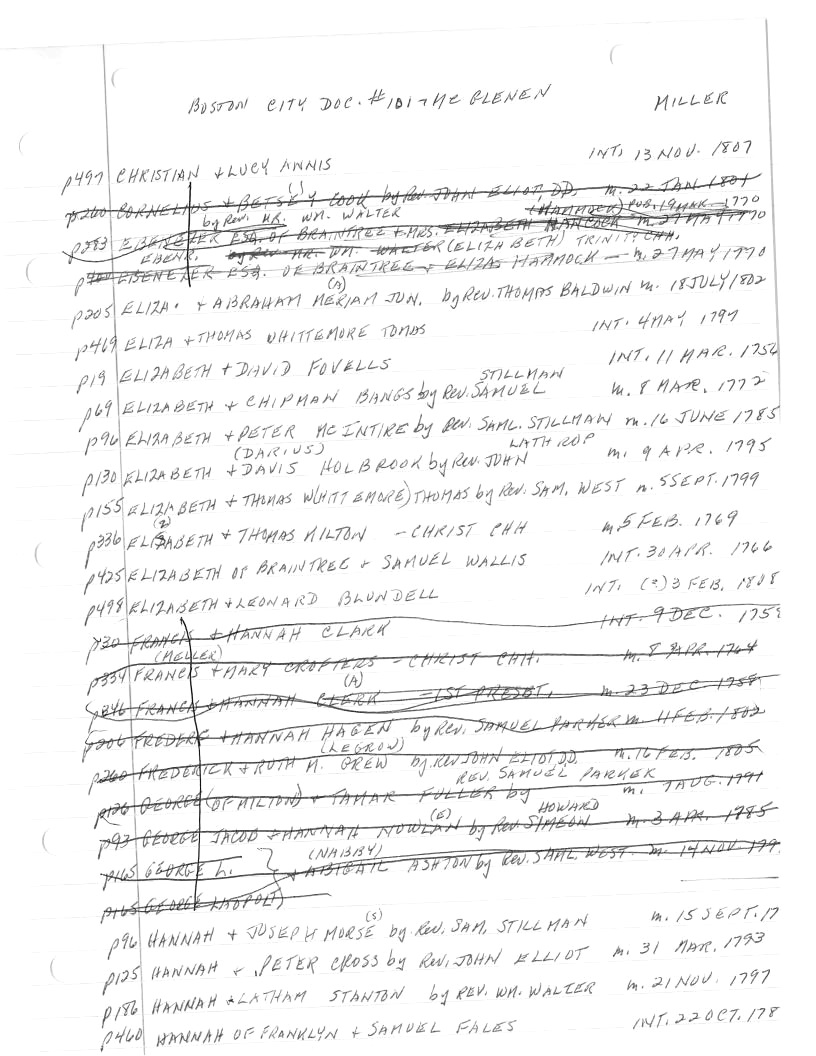 BOSTON CITY DOC. #101 - MC GLENEN MILLER
p497 CHRISTIAN + LUCY ANNIS INT. 13 NOV. 1807
p260 CORNELIUS + BETSEY COOK by Rev. JOHN ELIOT, DD. m. 22 JAN 1801
by Rev. MR. WM. WALTER (HAMMOCK) PUB. 19 MAR. 1770
p283 EBENEZER ESQ. OF BRAINTREE + MRS. ELIZABETH HANCOCK m. 27 MAY 1770
EBENR. by REV MR. WM. WALTER (ELIZABETH) TRINITY CHH.
EBENEZER ESQ. OF BRAINTREE + ELIZA HAMMOCK - m. 27 MAY 1770
(A)
p205 ELIZA. + ABRAHAM MERIAM JUN. by Rev. THOMAS BALDWIN m. 18 JULY 1802
p469 ELIZA + THOMAS WHITTEMORE TOMAS INT. 4 MAY 1797
p19 ELIZABETH + DAVID FOVELLS INT. 11 MAR. 1756
STILLMAN
p69 ELIZABETH + CHIPMAN BANGS by Rev. SAMUEL m. 8 MAR. 1772
p96 ELIZABETH + PETER MC INTIRE by Rev. SAML. STILLMAN m. 16 JUNE 1785
(DARIUS) LATHROP
p130 ELIZABETH + DAVIS HOLBROOK by Rev. JOHN m. 9 APR. 1795
p155 ELIZABETH + THOMAS W(HITTEMORE) THOMAS by Rev. SAM. WEST m. 5 SEPT. 1799
(Z)
p336 ELISABETH + THOMAS MILTON - CHRIST CHH m. 5 FEB. 1769
p425 ELIZABETH OF BRAINTREE + SAMUEL WALLIS INT. 30 APR. 1766
p498 ELIZABETH + LEONARD BLUNDELL INT. (2) 3 FEB. 1808
p30 FRANCIS + HANNAH CLARK INT. 9 DEC. 175
(MELLER)
p334 FRANCIS + MARY CROFTERS - CHRIST CHH. m. 8 APR. 1764
(A)
p346 FRANCIS + HANNAH CLERK - 1ST PRESBT. m. 23 DEC 1758
p206 FREDERC + HANNAH HAGEN by Rev. SAMUEL PARKER m. 11 FEB. 1802
(LEGROW)
p260 FREDERICK + RUTH M. GREW by REV JOHN ELIOT, DD m. 16 FEB. 1805
REV. SAMUEL PARKER
p126 GEORGE (OF MILTON) + TAMAR FULLER by m. 7 AUG. 1791
(E) HOWARD
p93 GEORGE JACOB + HANNAH NOWLAN by Rev. SIMEON m. 3 APR. 1785
(NABBY)
p165 GEORGE L. + ABIGAIL ASHTON by Rev. SAML. WEST m. 14 NOV. 179
p165 GEORGE L(EOPOLT)
(S)
p96 HANNAH + JOSEPH MORSE by Rev. SAM. STILLMAN m. 15 SEPT. 17
p125 HANNAH + PETER CROSS by Rev. JOHN ELLIOT m. 31 MAR. 1793
p186 HANNAH + LATHAM STANTON by REV. WM. WALTER m. 21 NOV. 1797
p460 HANNAH OF FRANKLYN + SAMUEL FALES INT. 22 OCT. 178